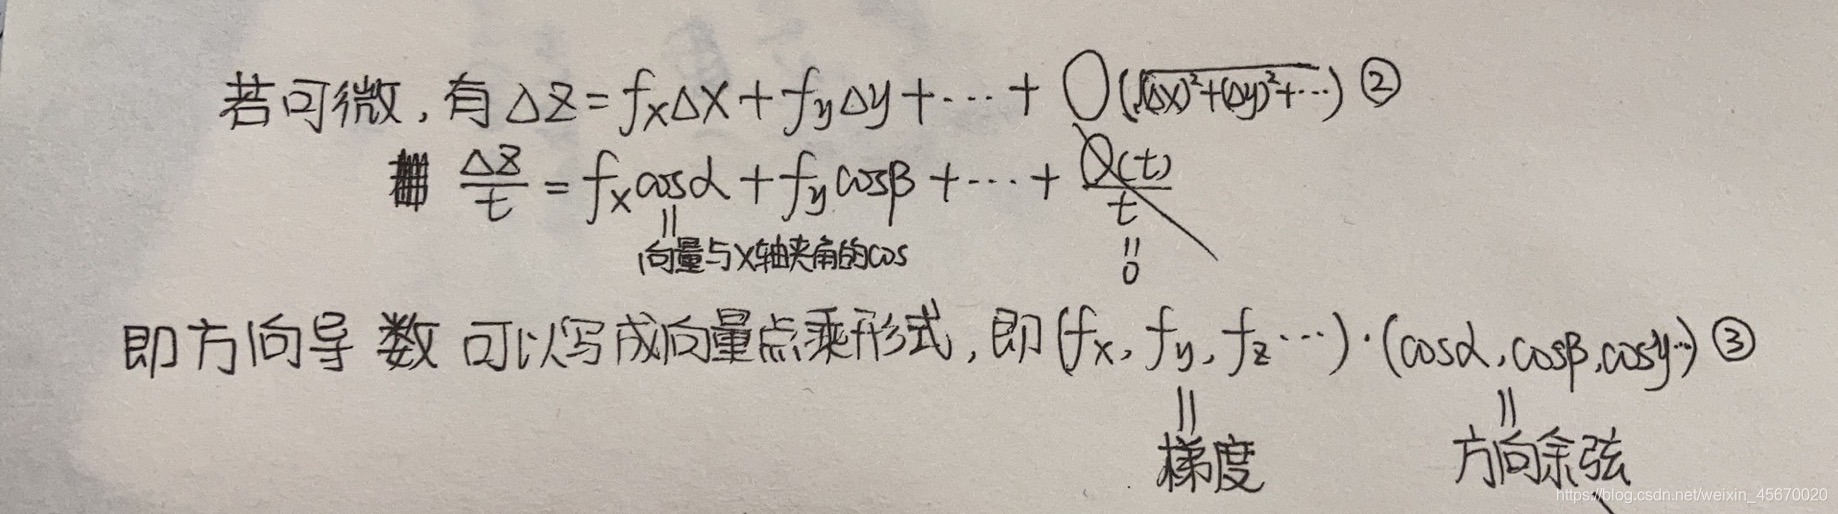 若可微,有 Δz=fxΔx+fyΔy+⋯+O(√(Δx)²+(Δy)²+⋯) ②
Δz/t=fxcosα+fycosβ+⋯+O(t)/t
=
向量与X轴夹角的cos
=
0
即方向导数可以写成向量点乘形式,即(fx,fy,fz⋯)·(cosα,cosβ,cosγ⋯) ③
= =
梯度 方向余弦
https://blog.csdn.net/weixin_45670020